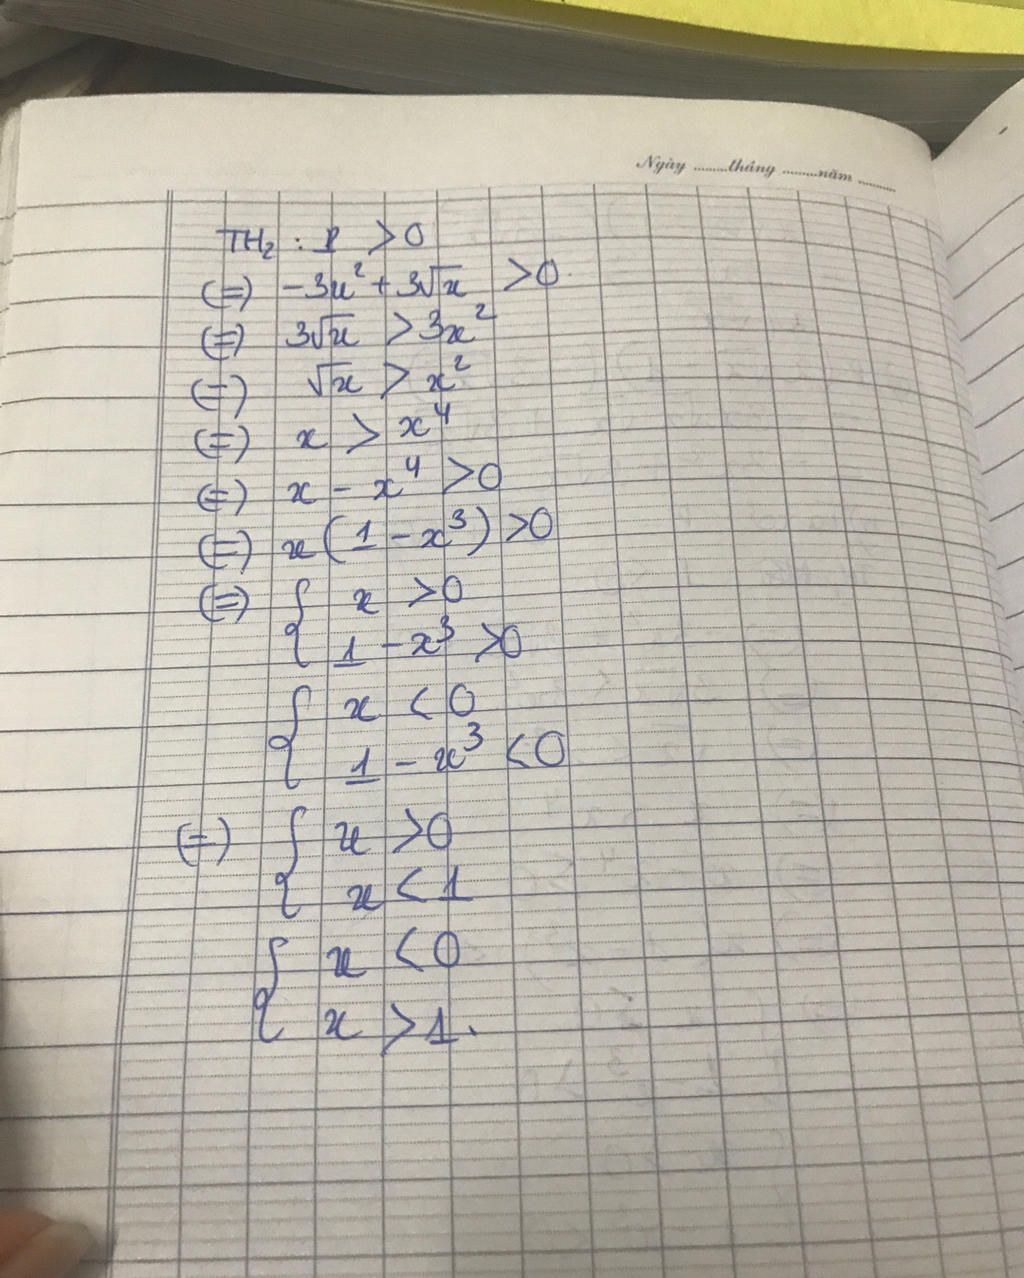 Ngày ........tháng ........năm ........
TH₂ : P > 0
(=) -3x² + 3√x > 0
(=) 3√x > 3x²
(=) √x > x²
(=) x > x⁴
(=) x - x⁴ > 0
(=) x(1 - x³) > 0
(=) { x > 0
1 - x³ > 0
{ x < 0
1 - x³ < 0
(=) { x > 0
x < 1
{ x < 0
x > 1.